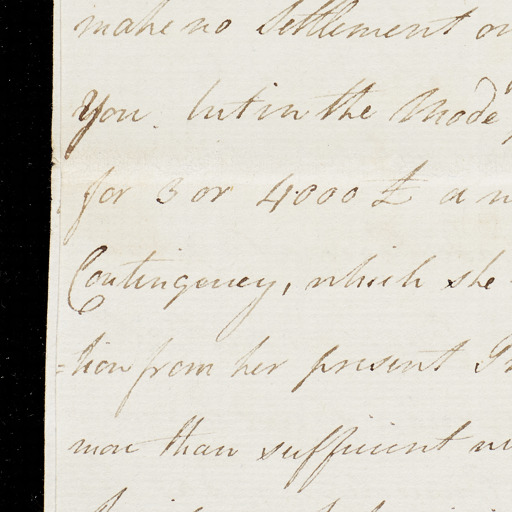 make no Settlement on
You. but in the Mode
for 3 or 4000 £ a
Contingency, which she
=tion from her present
more than sufficient